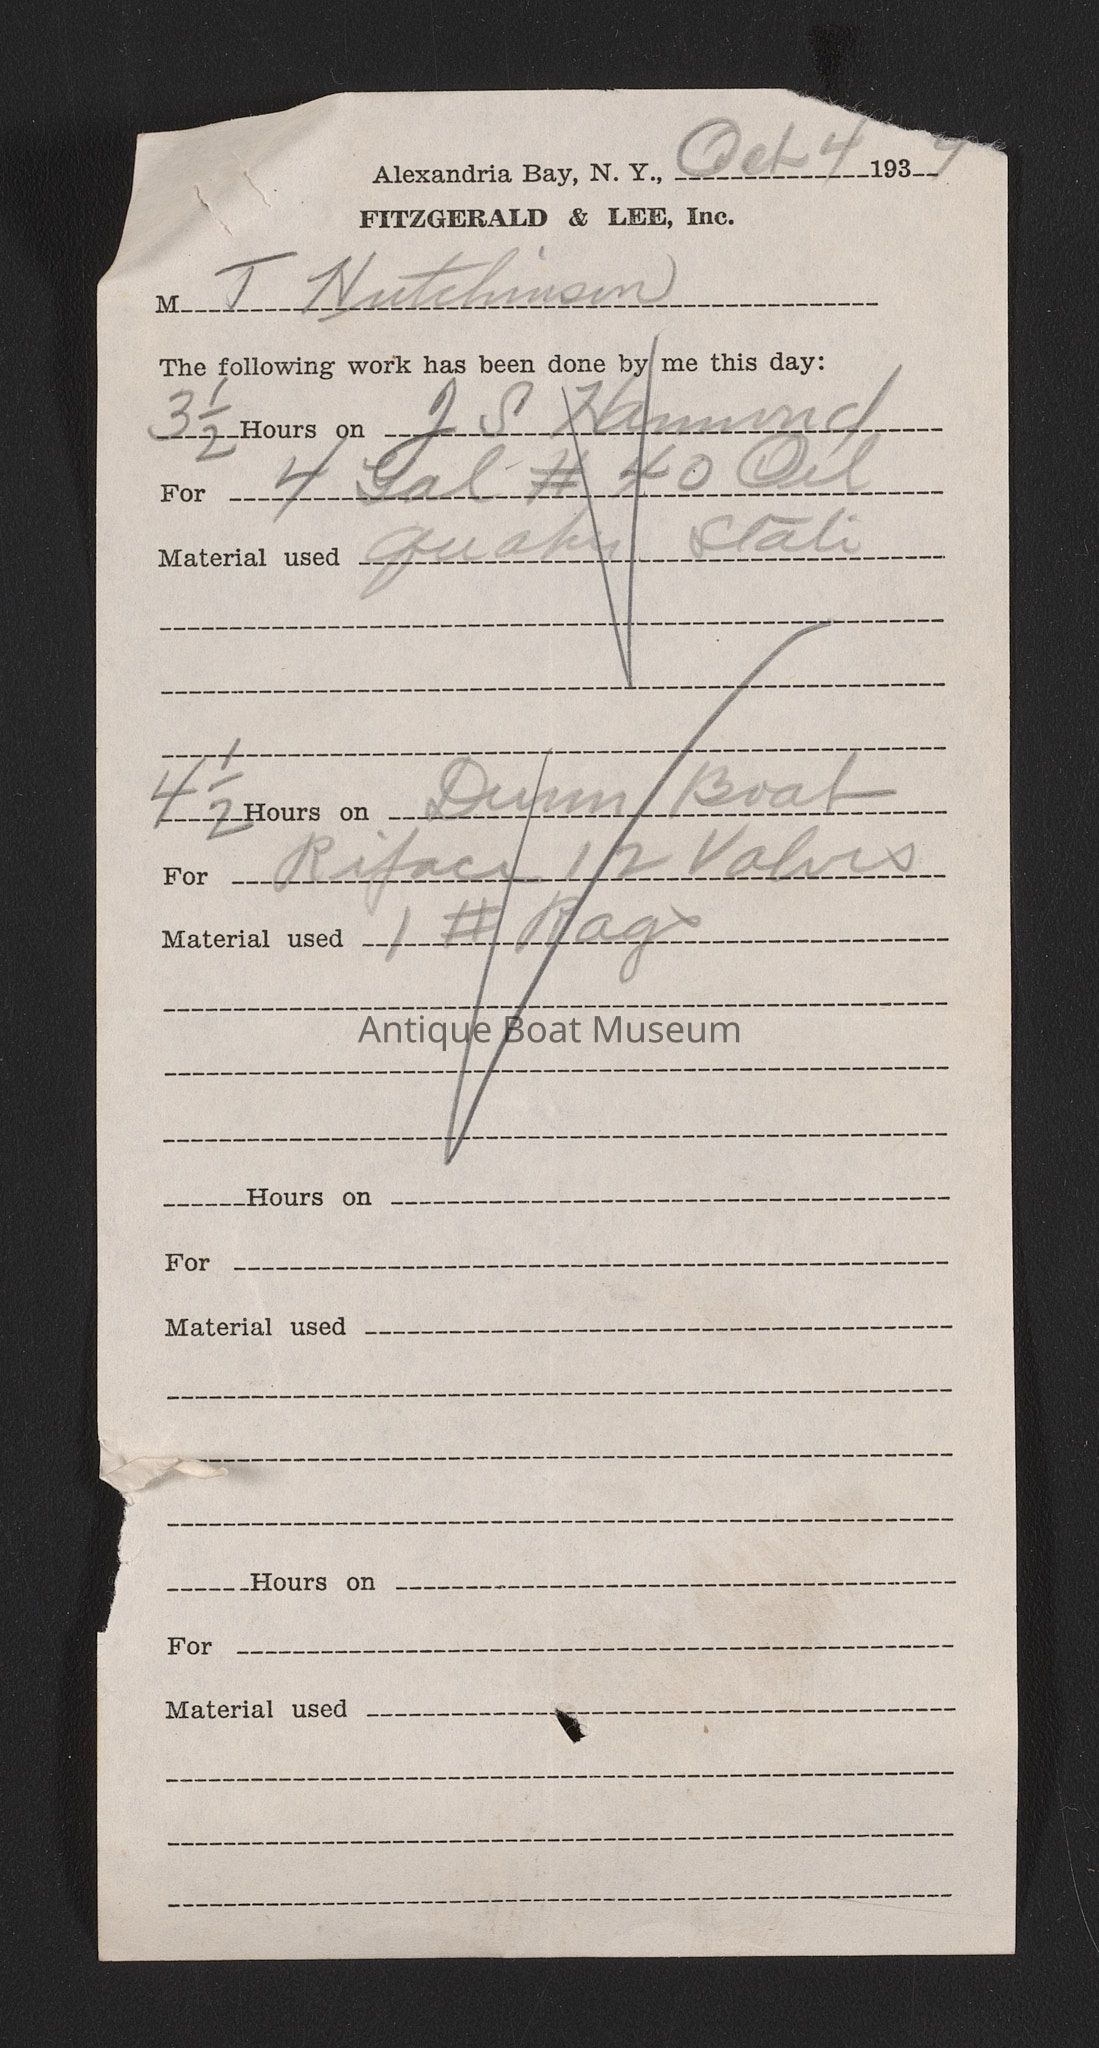 Alexandria Bay, N. Y., Oct 4 193
FITZGERALD & LEE, Inc.
M T Hutchinson
The following work has been done by me this day:
3 1/2 Hours on J S Hammond
For 4 Gal # 40 Oil
Material used Quaker State
4 1/2 Hours on Dunn Boat
For Riface 12 Valves
Material used 1 # Rags
Antique Boat Museum
Hours on
For
Material used
Hours on
For
Material used